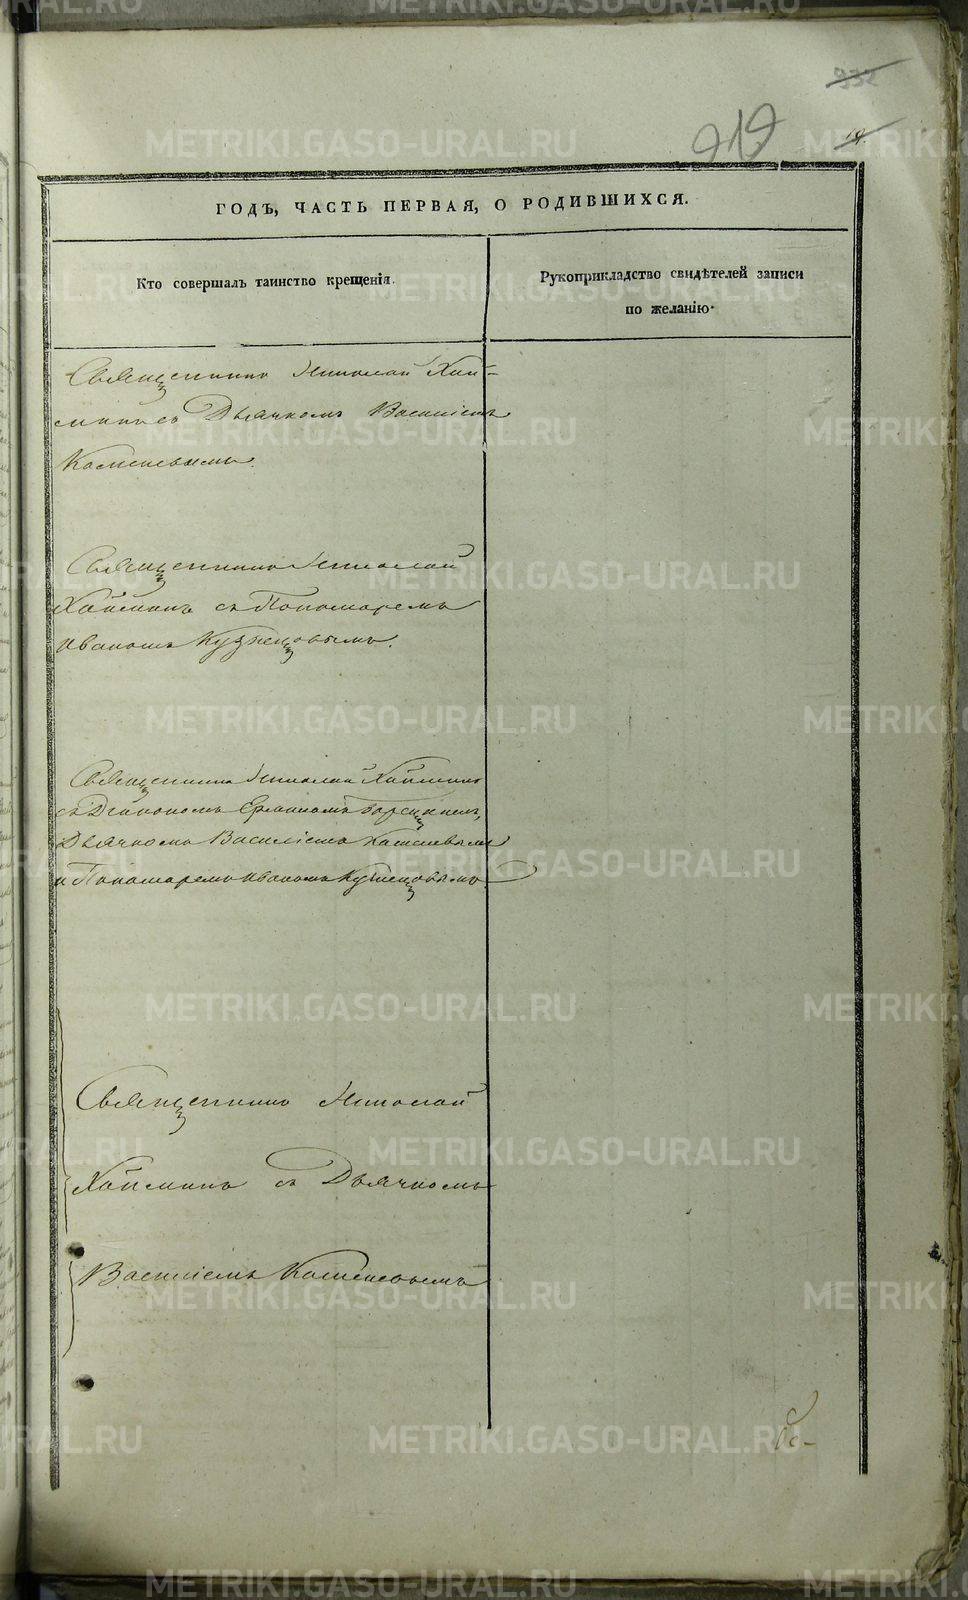 332
919
19.
ГОДЪ, ЧАСТЬ ПЕРВАЯ, О РОДИВШИХСЯ.
Кто совершалъ таинство крещенія.
Рукоприкладство свидѣтелей записи
по желанію.
Священникъ Николай Хай-
минъ съ Дьячкомъ Василіемъ
Священникъ Николай
Хайминъ съ Пономаремъ
Иваномъ Кузнецовымъ.
Священникъ Николай Хайминъ
съ Діакономъ
Дьячкомъ Василіемъ
и Пономаремъ Иваномъ Кузнецовымъ
Священникъ Николай
Хайминъ съ Дьячкомъ
Василіемъ
METRIKI.GASO-URAL.RU